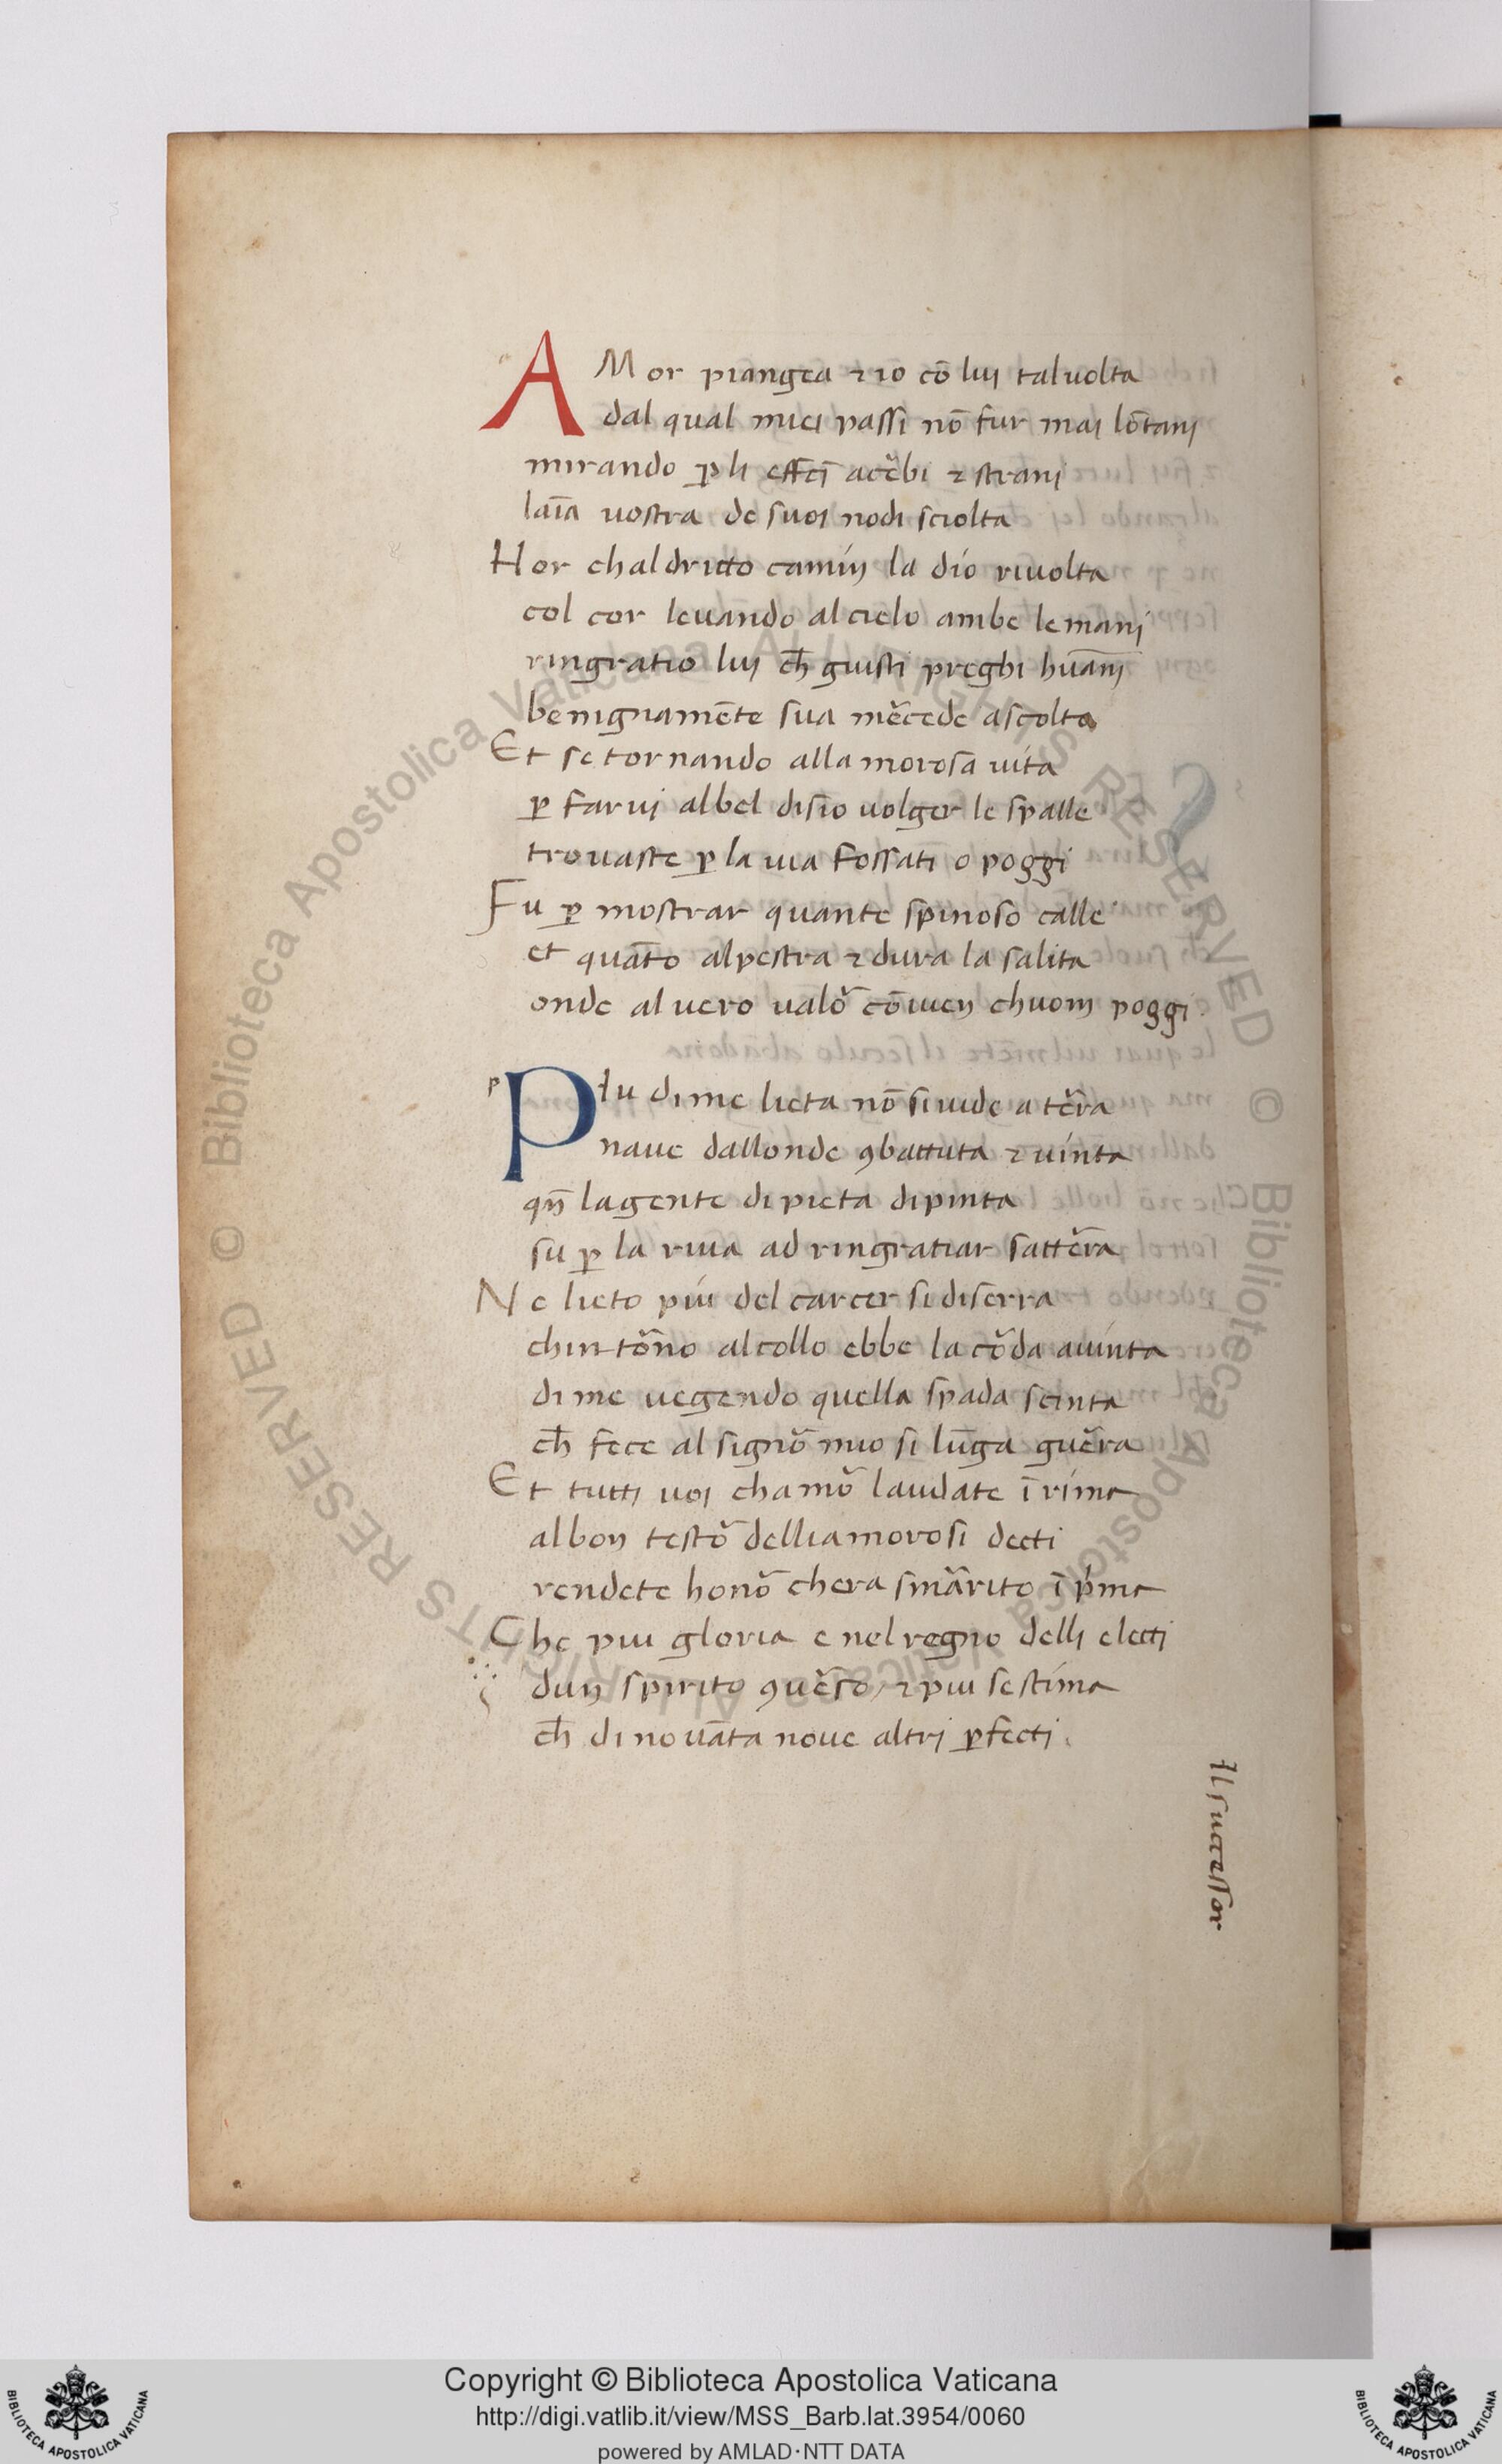 AMor piangea ⁊ io cō luj tal uolta
dal qual miei passi nō fur mai lōtanj
mirando ꝑ li effcī acĕbi ⁊ stranj
laīa uostra de suoi nodi sciolta
Hor chal dritto camin la dio riuolta
col cor leuando al cielo ambe le manj
ringratio luj ch̄ giusti preghi huānj
benignamēte sua mĕcede ascolta
Et se tornando alla morosa uita
ꝑ faruj al bel disio uolger le spalle
trouaste ꝑ la uia fossati o poggi
Fu ꝑ mostrar quante spinoso calle
et quāto alpestra ⁊ dura la salita
onde al uero ualŏ cōuien chuom poggi.
p
PIu di me lieta nō si uide a tĕra
naue dallonde ꝯbattuta ⁊ uinta
qn̄ la gente di pieta dipinta
su ꝑ la riua ad ringratiar sattĕra
Ne lieto piu del carcer si diserra
chin tŏno al collo ebbe la cŏda auinta
di me uegendo quella spada scinta
ch̄ fece al signŏ mio si lūga guĕra
Et tutti uoi chamŏ laudate ī rima
al bon testŏ delli amorosi decti
rendete honŏ chera smărito ī pima
Che piu gloria e nel regno delli electi
dun spirito ꝯuĕso, ⁊ piu sestima
ch̄ di nouāta noue altri ꝑfecti.
Il successor
Copyright © Biblioteca Apostolica Vaticana
http://digi.vatlib.it/view/MSS_Barb.lat.3954/0060
powered by AMLAD·NTT DATA